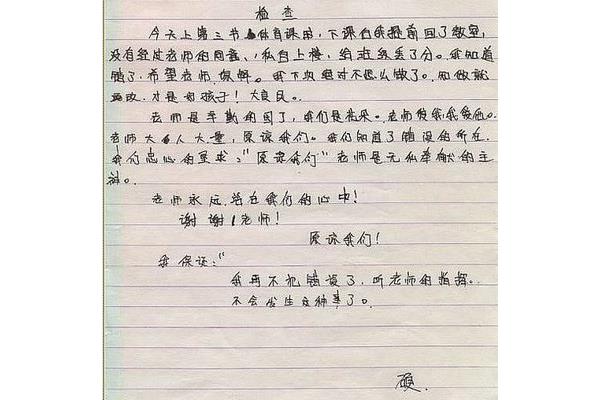 检 查
今天上第三节体育课时，下课后我提前回了教室，
没有经过老师的同意，私自上楼，给班级丢了分。我知道
错了，希望老师原谅。我下次绝对不这么做了。知做就
要改，才是好孩子！大良民。
老师是辛勤的园丁，我们是花朵。老师
老师大人大量，原谅我们。我们知道了错误的所在，
我们忠心的恳求：“原谅我们”老师是无私奉献的主
老师永远活在我们的心中！
谢谢！老师！
原谅我们！
我保证：“
我再不犯错误了，听老师的指挥。
不会发生这种事了。